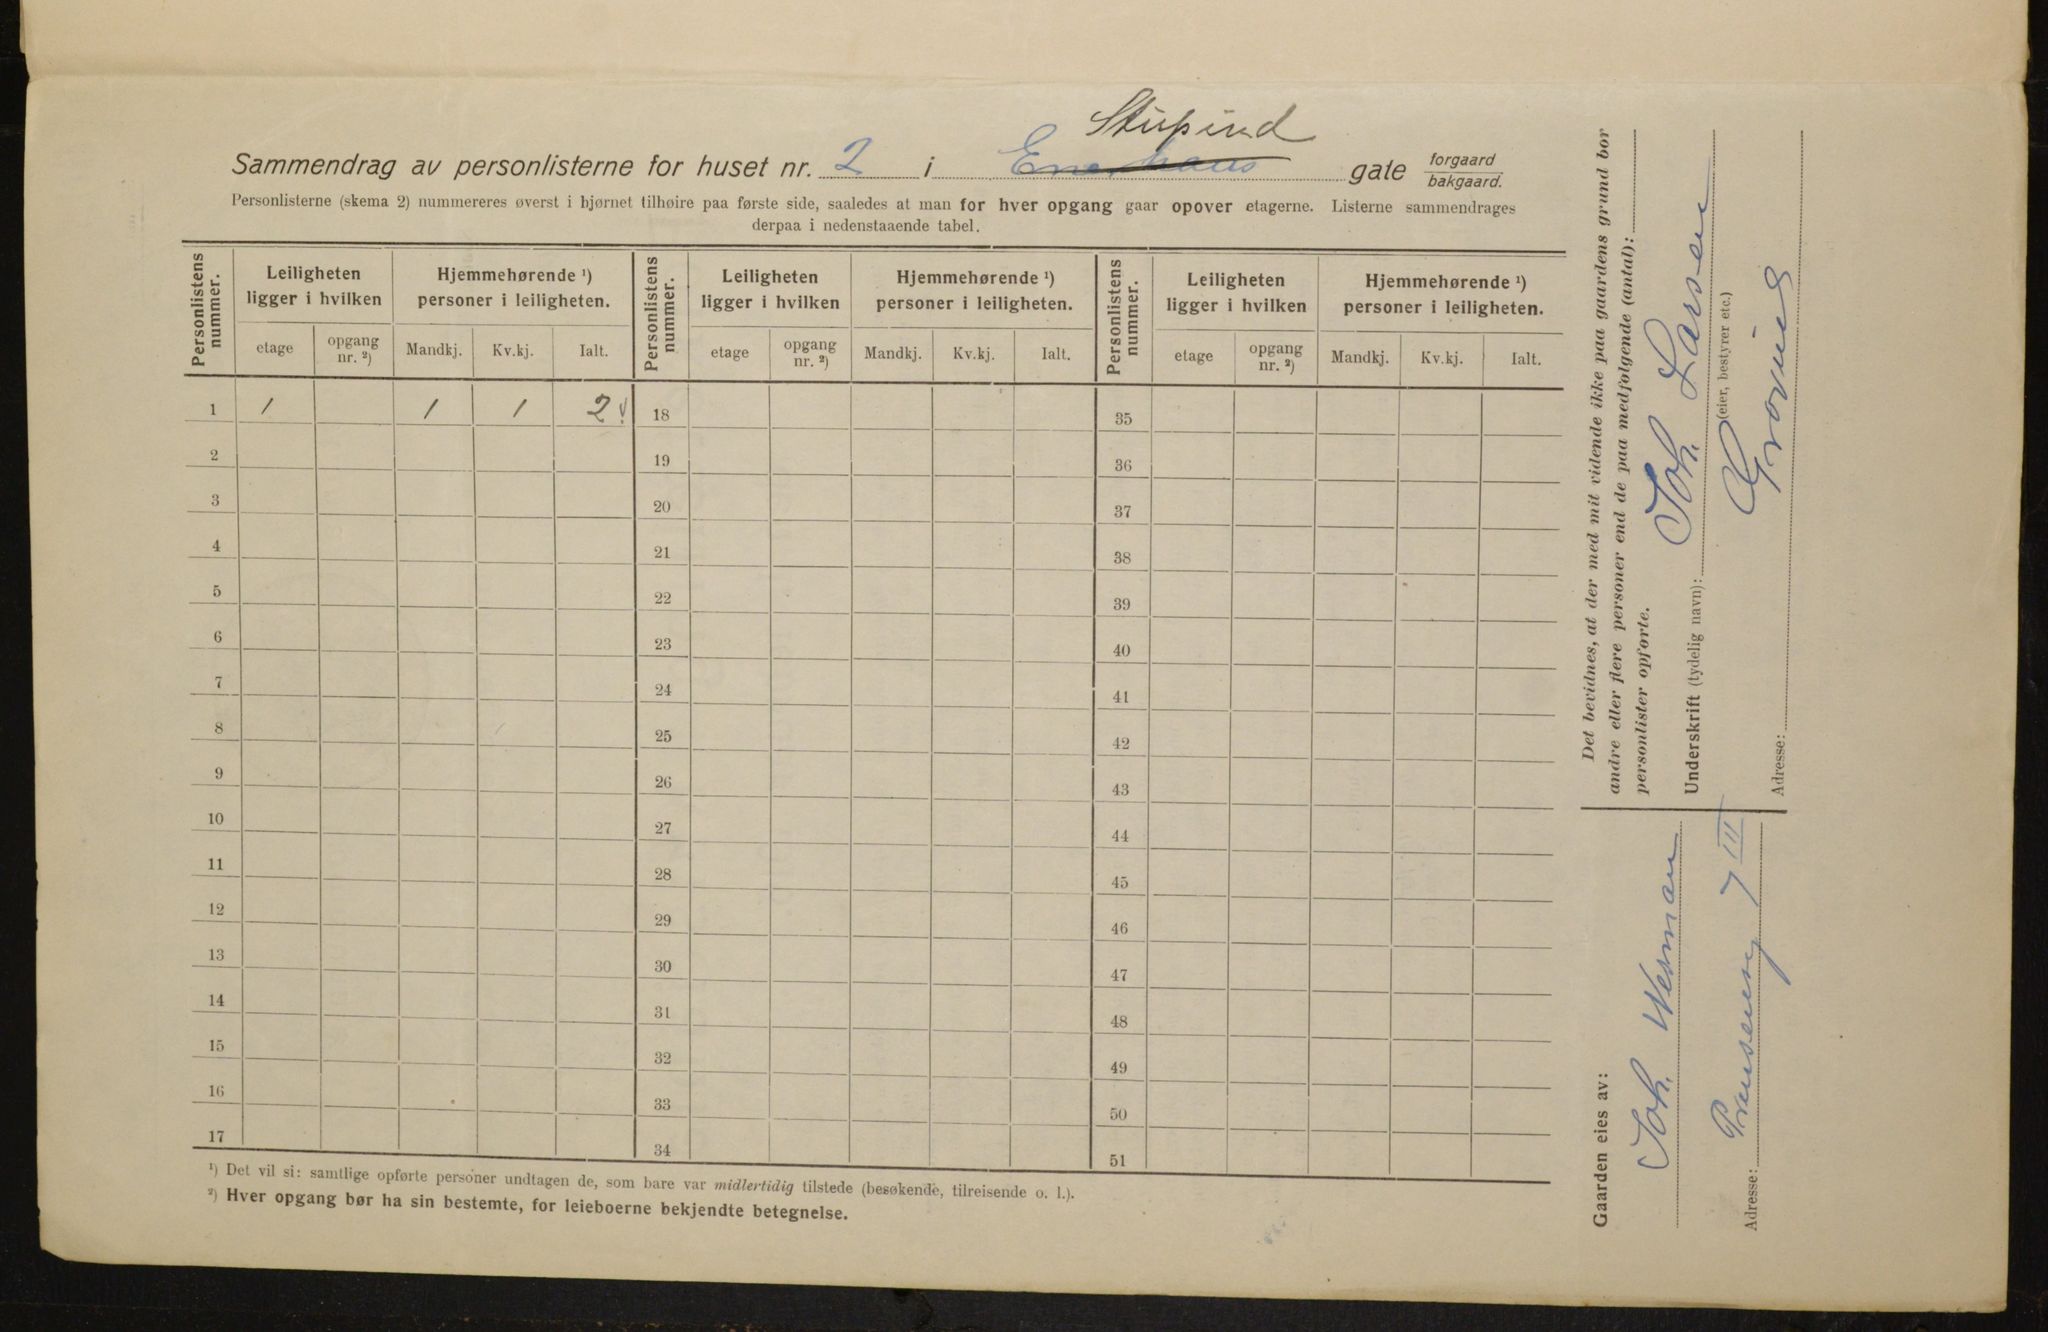 Stupind
Sammendrag av personlisterne for huset nr. 2 i gate forgaard bakgaard.
Personlisterne (skema 2) nummereres øverst i hjørnet tilhøire paa første side, saaledes at man for hver opgang gaar opover etagerne. Listerne sammendrages
derpaa i nedenstaaende tabel.
Personlistens nummer. Leiligheten ligger i hvilken Hjemmehørende ¹) personer i leiligheten. Personlistens nummer. Leiligheten ligger i hvilken Hjemmehørende ¹) personer i leiligheten. Personlistens nummer. Leiligheten ligger i hvilken Hjemmehørende ¹) personer i leiligheten.
etage opgang nr. ²) Mandkj. Kv.kj. Ialt. etage opgang nr. ²) Mandkj. Kv.kj. Ialt. etage opgang nr. ²) Mandkj. Kv.kj. Ialt.
1 1 1 1 2 18 35
2 19 36
3 20 37
4 21 38
5 22 39
6 23 40
7 24 41
8 25 42
9 26 43
10 27 44
11 28 45
12 29 46
13 30 47
14 31 48
15 32 49
16 33 50
17 34 51
¹) Det vil si: samtlige opførte personer undtagen de, som bare var midlertidig tilstede (besøkende, tilreisende o. l.).
²) Hver opgang bør ha sin bestemte, for leieboerne bekjendte betegnelse.
Det bevidnes, at der med mit vidende ikke paa gaardens grund bor
andre eller flere personer end de paa medfølgende (antal):
personlister opførte.
Underskrift (tydelig navn): Joh. Larsen
(eier, bestyrer etc.)
Adresse:
Gaarden eies av:
Joh. Werman
Adresse: 7 III